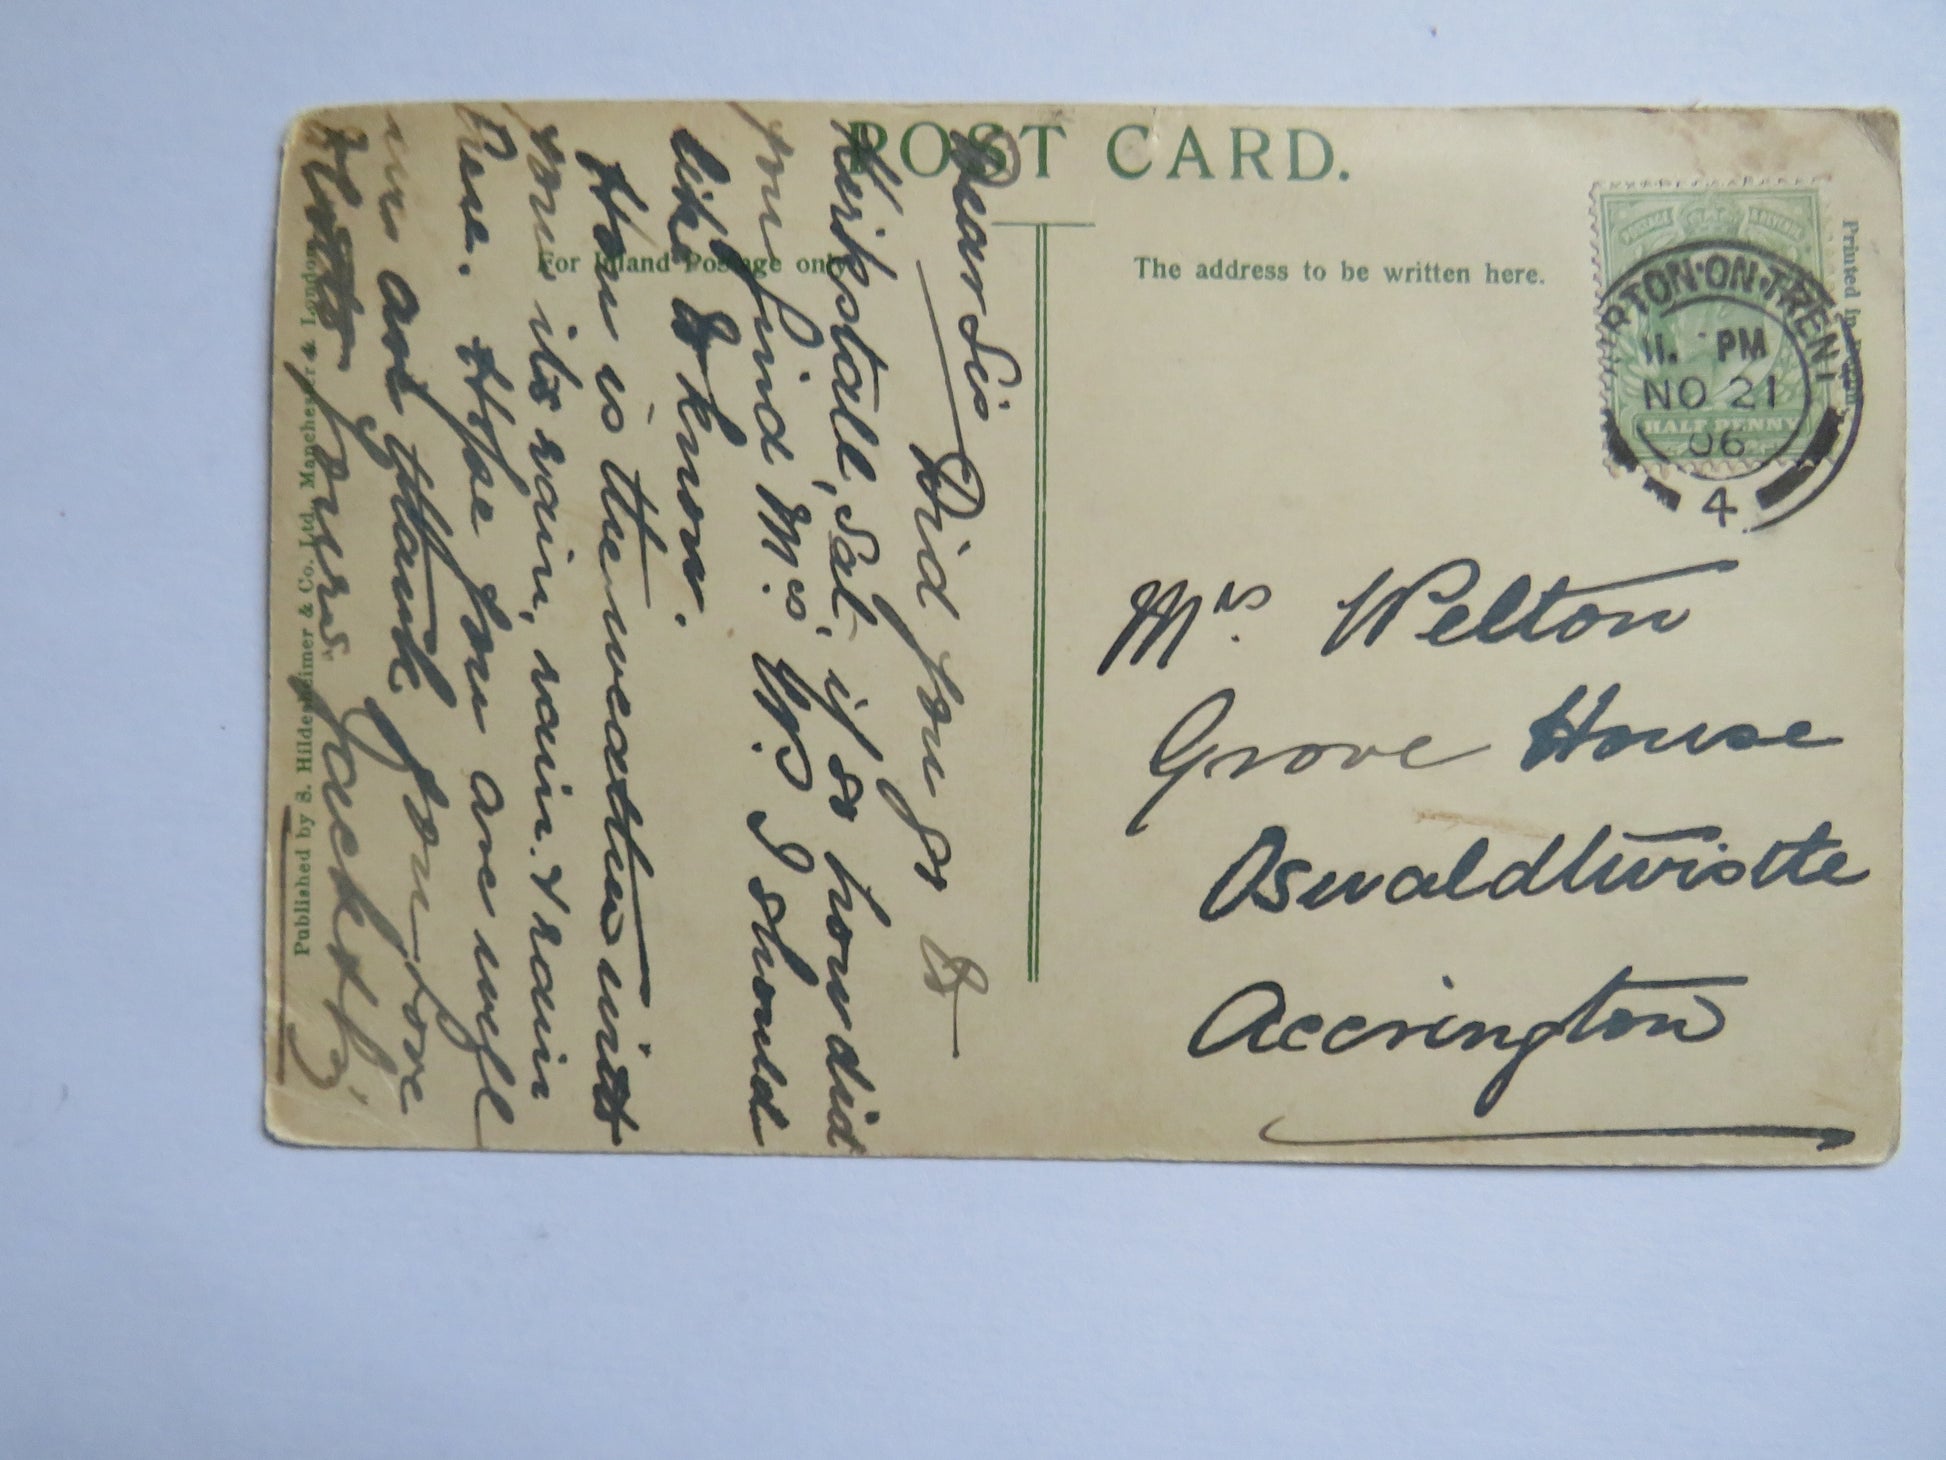 POST CARD.
For Inland Postage only
The address to be written here.
Printed in
BURTON-ON-TRENT
11. PM
NO 21
06
4
HALF PENNY
Mrs Welton
Grove House
Oswaldtwistle
Accrington
Dear Sis
Did you go to
Kirkstall, Sat, if so how did
you find Mrs. G. I should
like to know.
How is the weather with
you its rain, rain & rain
here. Hope you are well
we are thank you love
yours
Published by S. Hildesheimer & Co. Ltd. Manchester & London